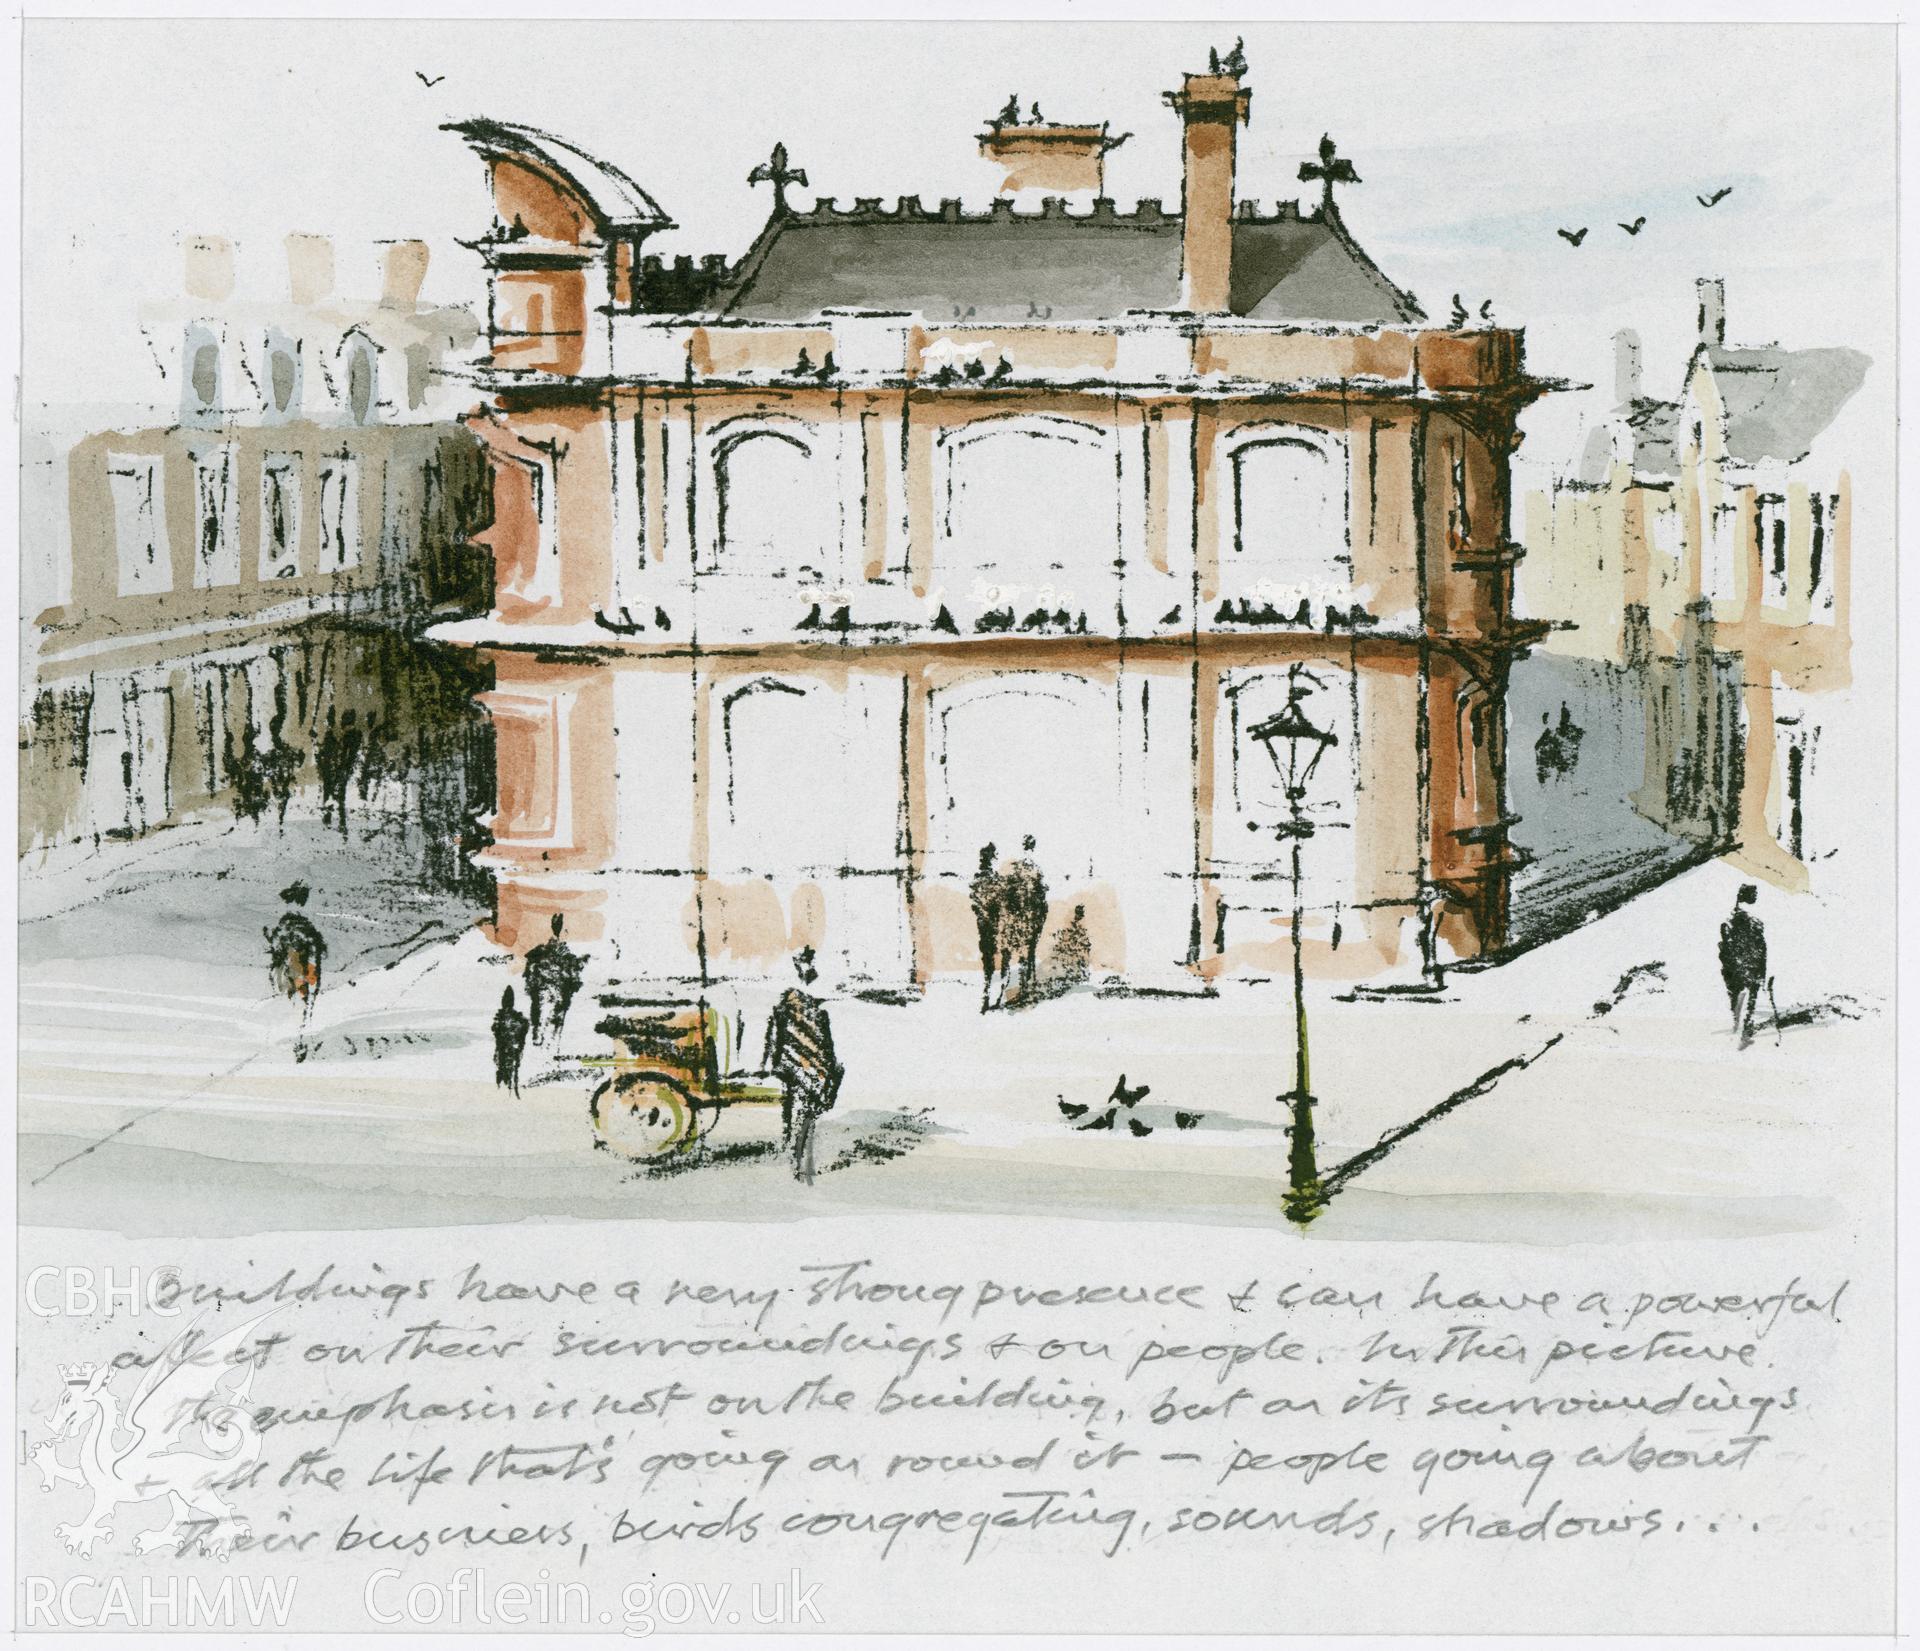 buildings have a very strong presence & can have a powerful
affect on their surroundings & on people. In this picture
the emphasis is not on the building, but on its surroundings
& all the life that's going on round it – people going about
their business, birds congregating, sounds, shadows...
CBHC
RCAHMW
Coflein.gov.uk